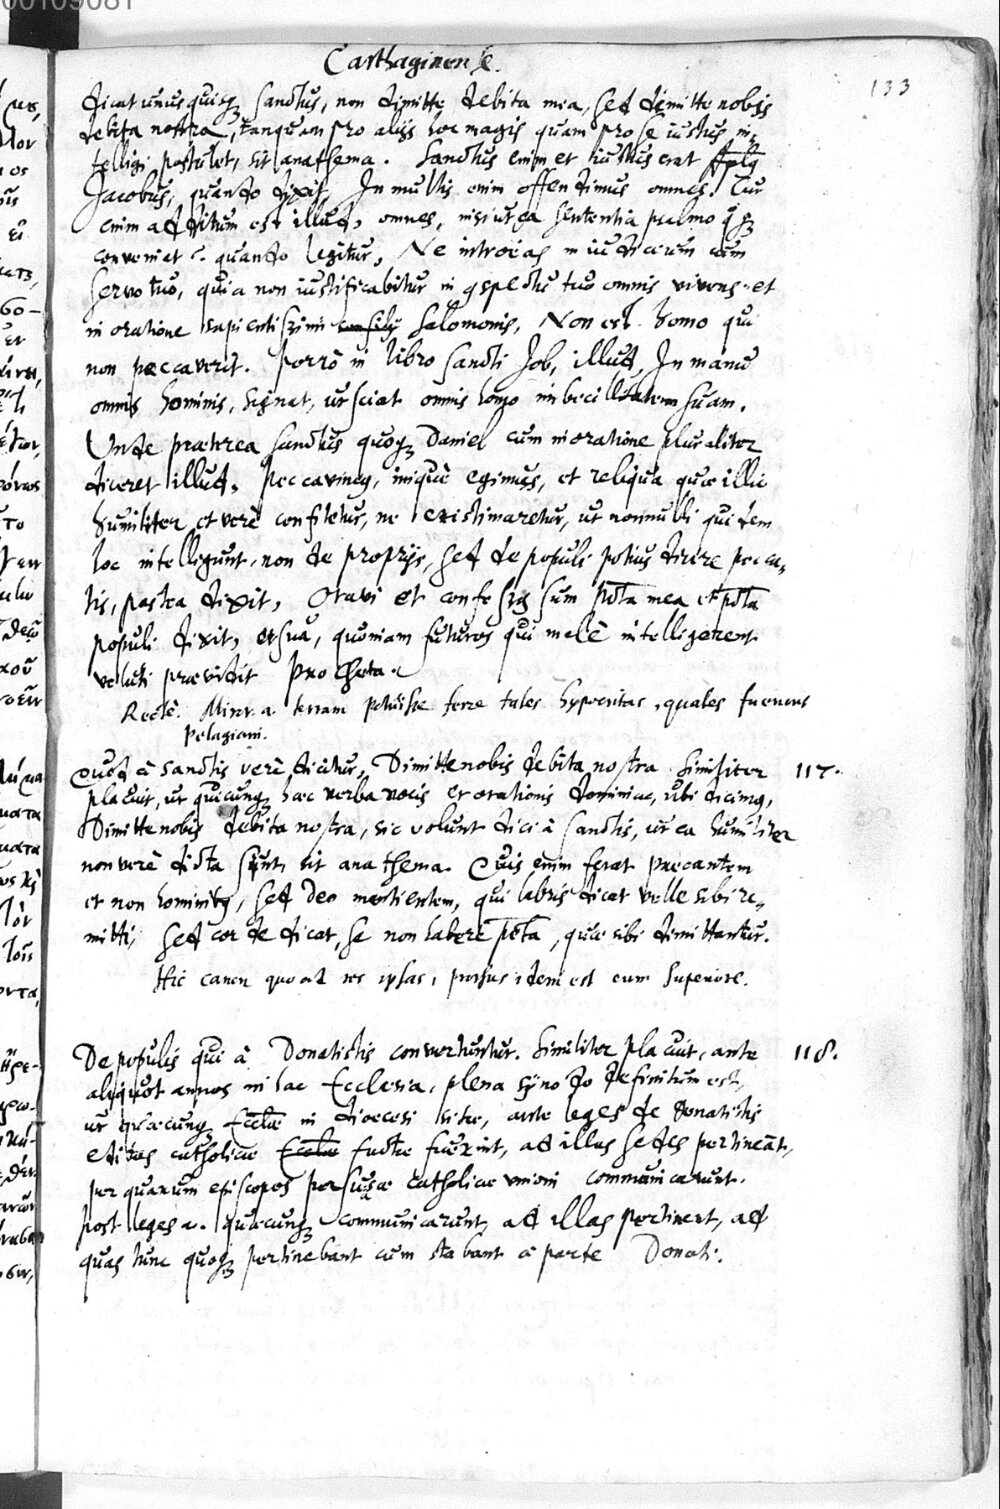 00109081
Carthaginense.
133
dicat unusquisq; sanctus, non dimitte debita mea, sed dimitte nobis
debita nostra, tanquam pro aliis hoc magis quam pro se iustus in-
telligi postulet, sit anathema. Sanctus enim et iustus erat Aplus
Jacobus, quando dixit, In multis enim offendimus omnes. Cur
enim additum est illud, omnes, nisi ut ea sententia psalmo q; 
conveniat? quando legitur, Ne introeas in iudicium cum
servo tuo, quia non iustificabitur in cspectu tuo omnis vivens. et
in oratione sapientissimi Salomonis, Non est homo qui
non peccaverit. Porrò in libro sancti Job, illud, In manu
omnis hominis, signat, ut sciat omnis homo imbecillitatem suam.
Unde praeterea sanctus quoq; Daniel cum in oratione pluraliter
diceret illud, Peccavimus, iniquè egimus, et reliqua quae illic
humiliter et verè confitetur, ne existimaretur, ut nonnulli quidem
hoc intelligunt, non de proprijs, sed de populi potius dicere pecca-
tis, postea dixit, Oravi et confessus sum pcta mea et pcta
populi dixit, et sua, quoniam futuros qui malè intelligerent
veluti praevidit Propheta.
Rectè. Miror a terram potuisse ferre tales hypocritas, quales fuerunt
Pelagiani.
Quod à sanctis verè dicitur, Dimitte nobis debita nostra. Similiter 117.
placuit, ut quicunq; haec verba vocis et orationis dominicae, ubi dicimus,
Dimitte nobis debita nostra, sic volunt dici à sanctis, ut ea humiliter
non verè dicta sint, sit anathema. Quis enim ferat precantem
et non hominibus, sed Deo mentientem, qui labris dicat velle sibi re-
mitti, sed corde dicat, se non habere pcta, quae sibi dimittantur.
Hic canon quoad res ipsas, prorsus idem est cum superiore.
De populis qui à Donatistis convertuntur. Similiter placuit, ante 118.
aliquot annos in hac Ecclesia, plena synodo definitum est,
ut quaecunq; Ecclae in dioecesi sitae, ante leges de Donatistis
editas catholicae factae fuerint, ad illas sedes pertineant,
per quarum episcopos persuasae catholicae unioni communicarunt.
post leges a. quaecunq; communicarunt, ad illas pertinent, ad
quas tunc quoq; pertinebant cum stabant à parte Donati.